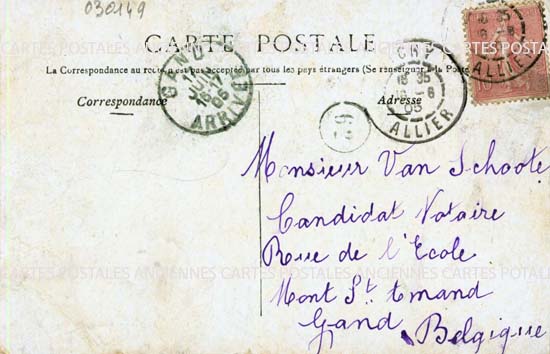 030149
CARTE POSTALE
La Correspondance au recto n'est pas acceptée par tous les pays étrangers (Se renseigner à la Poste)
Correspondance
Adresse
ARRIVÉE
ALLIER
ALLIER
62
Monsieur Van Schoote
Candidat Notaire
Rue de l'Ecole
Mont St. Amand
Gand Belgique
CARTES POSTALES ANCIENNES CARTES POSTALES ANCIENNES CARTES POTALES